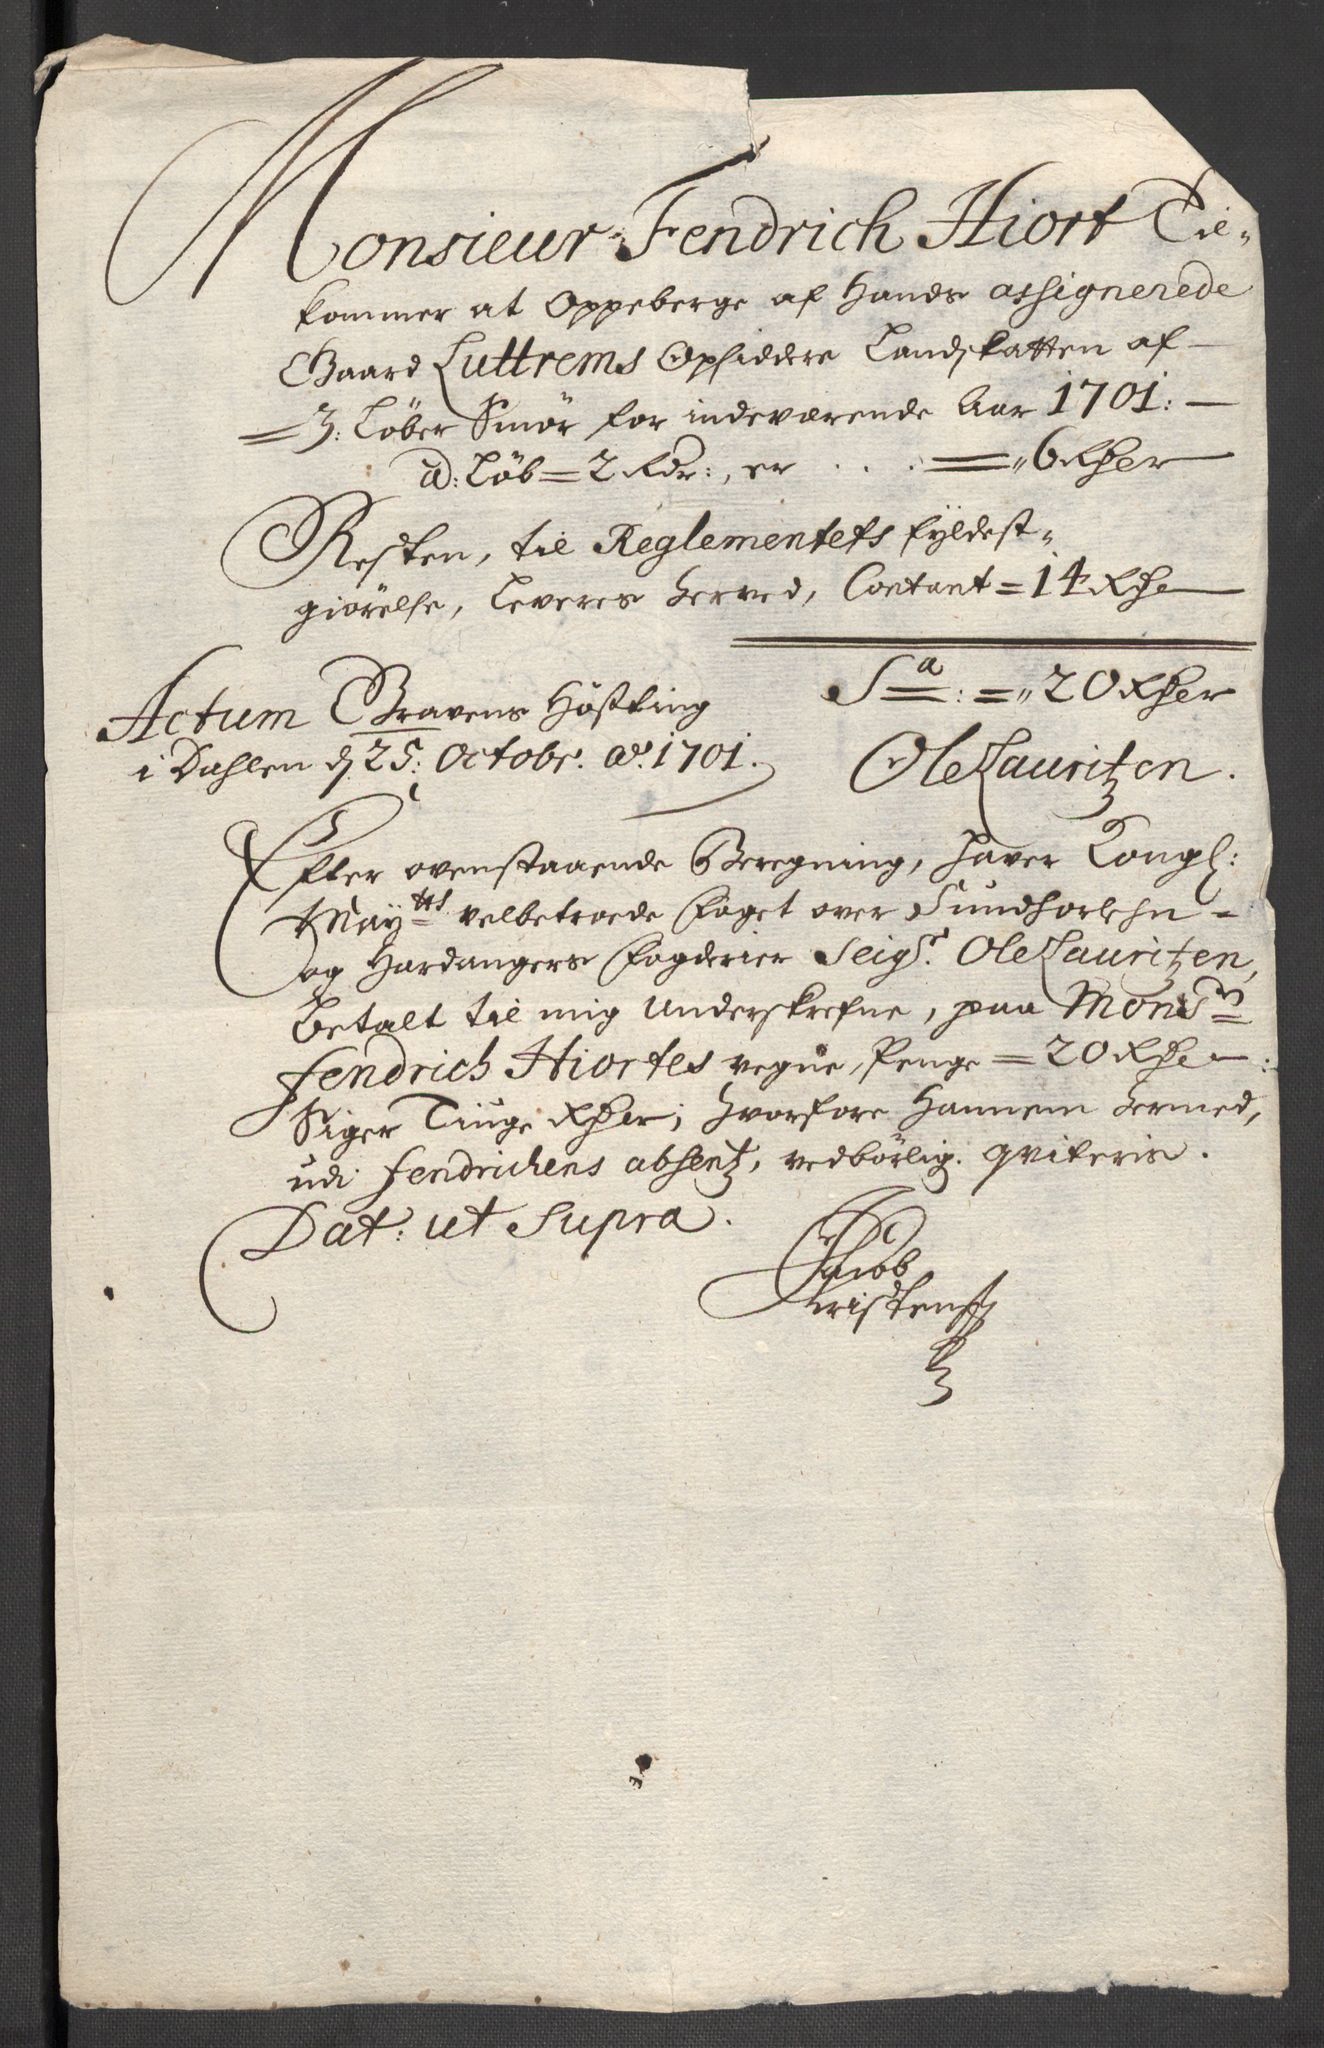 Monsieur Fendrich Hiort Til-
kommer at Oppeberge af Hands assignerede
Gaard Luttrems Opsiddere Landskatten af
= 3: Løber Smør for indeværende Aar 1701: —
a: Løb = 2 Rdr:, er . . . = 6 Rdr
Resten, til Reglementets fyldest-
giørelse, leveres herved, Contant = 14 Rdr
Sa: = 20 Rdr
Actum Gravens Høstting
i Dahlen d 25: Octobr. ao. 1701.
Ole Lauritzen.
Efter ovenstaaende Beregning, hafver Kongl:
Maytts velbetroede Foget over Sundhorlehn -
og Hardangers Fogderier Seigr. Ole Lauritzen,
betalt til mig Underskrefne, paa Monsrs
Fendrich Hiortes vegne, Penge = 20 Rdr:
Siger Tiuge Rdr; hvorfore Hannem hermed,
udi Fendrichens absentz, vedbørlig. qviteris.
Dat: ut Supra.
Jacob
Kristens